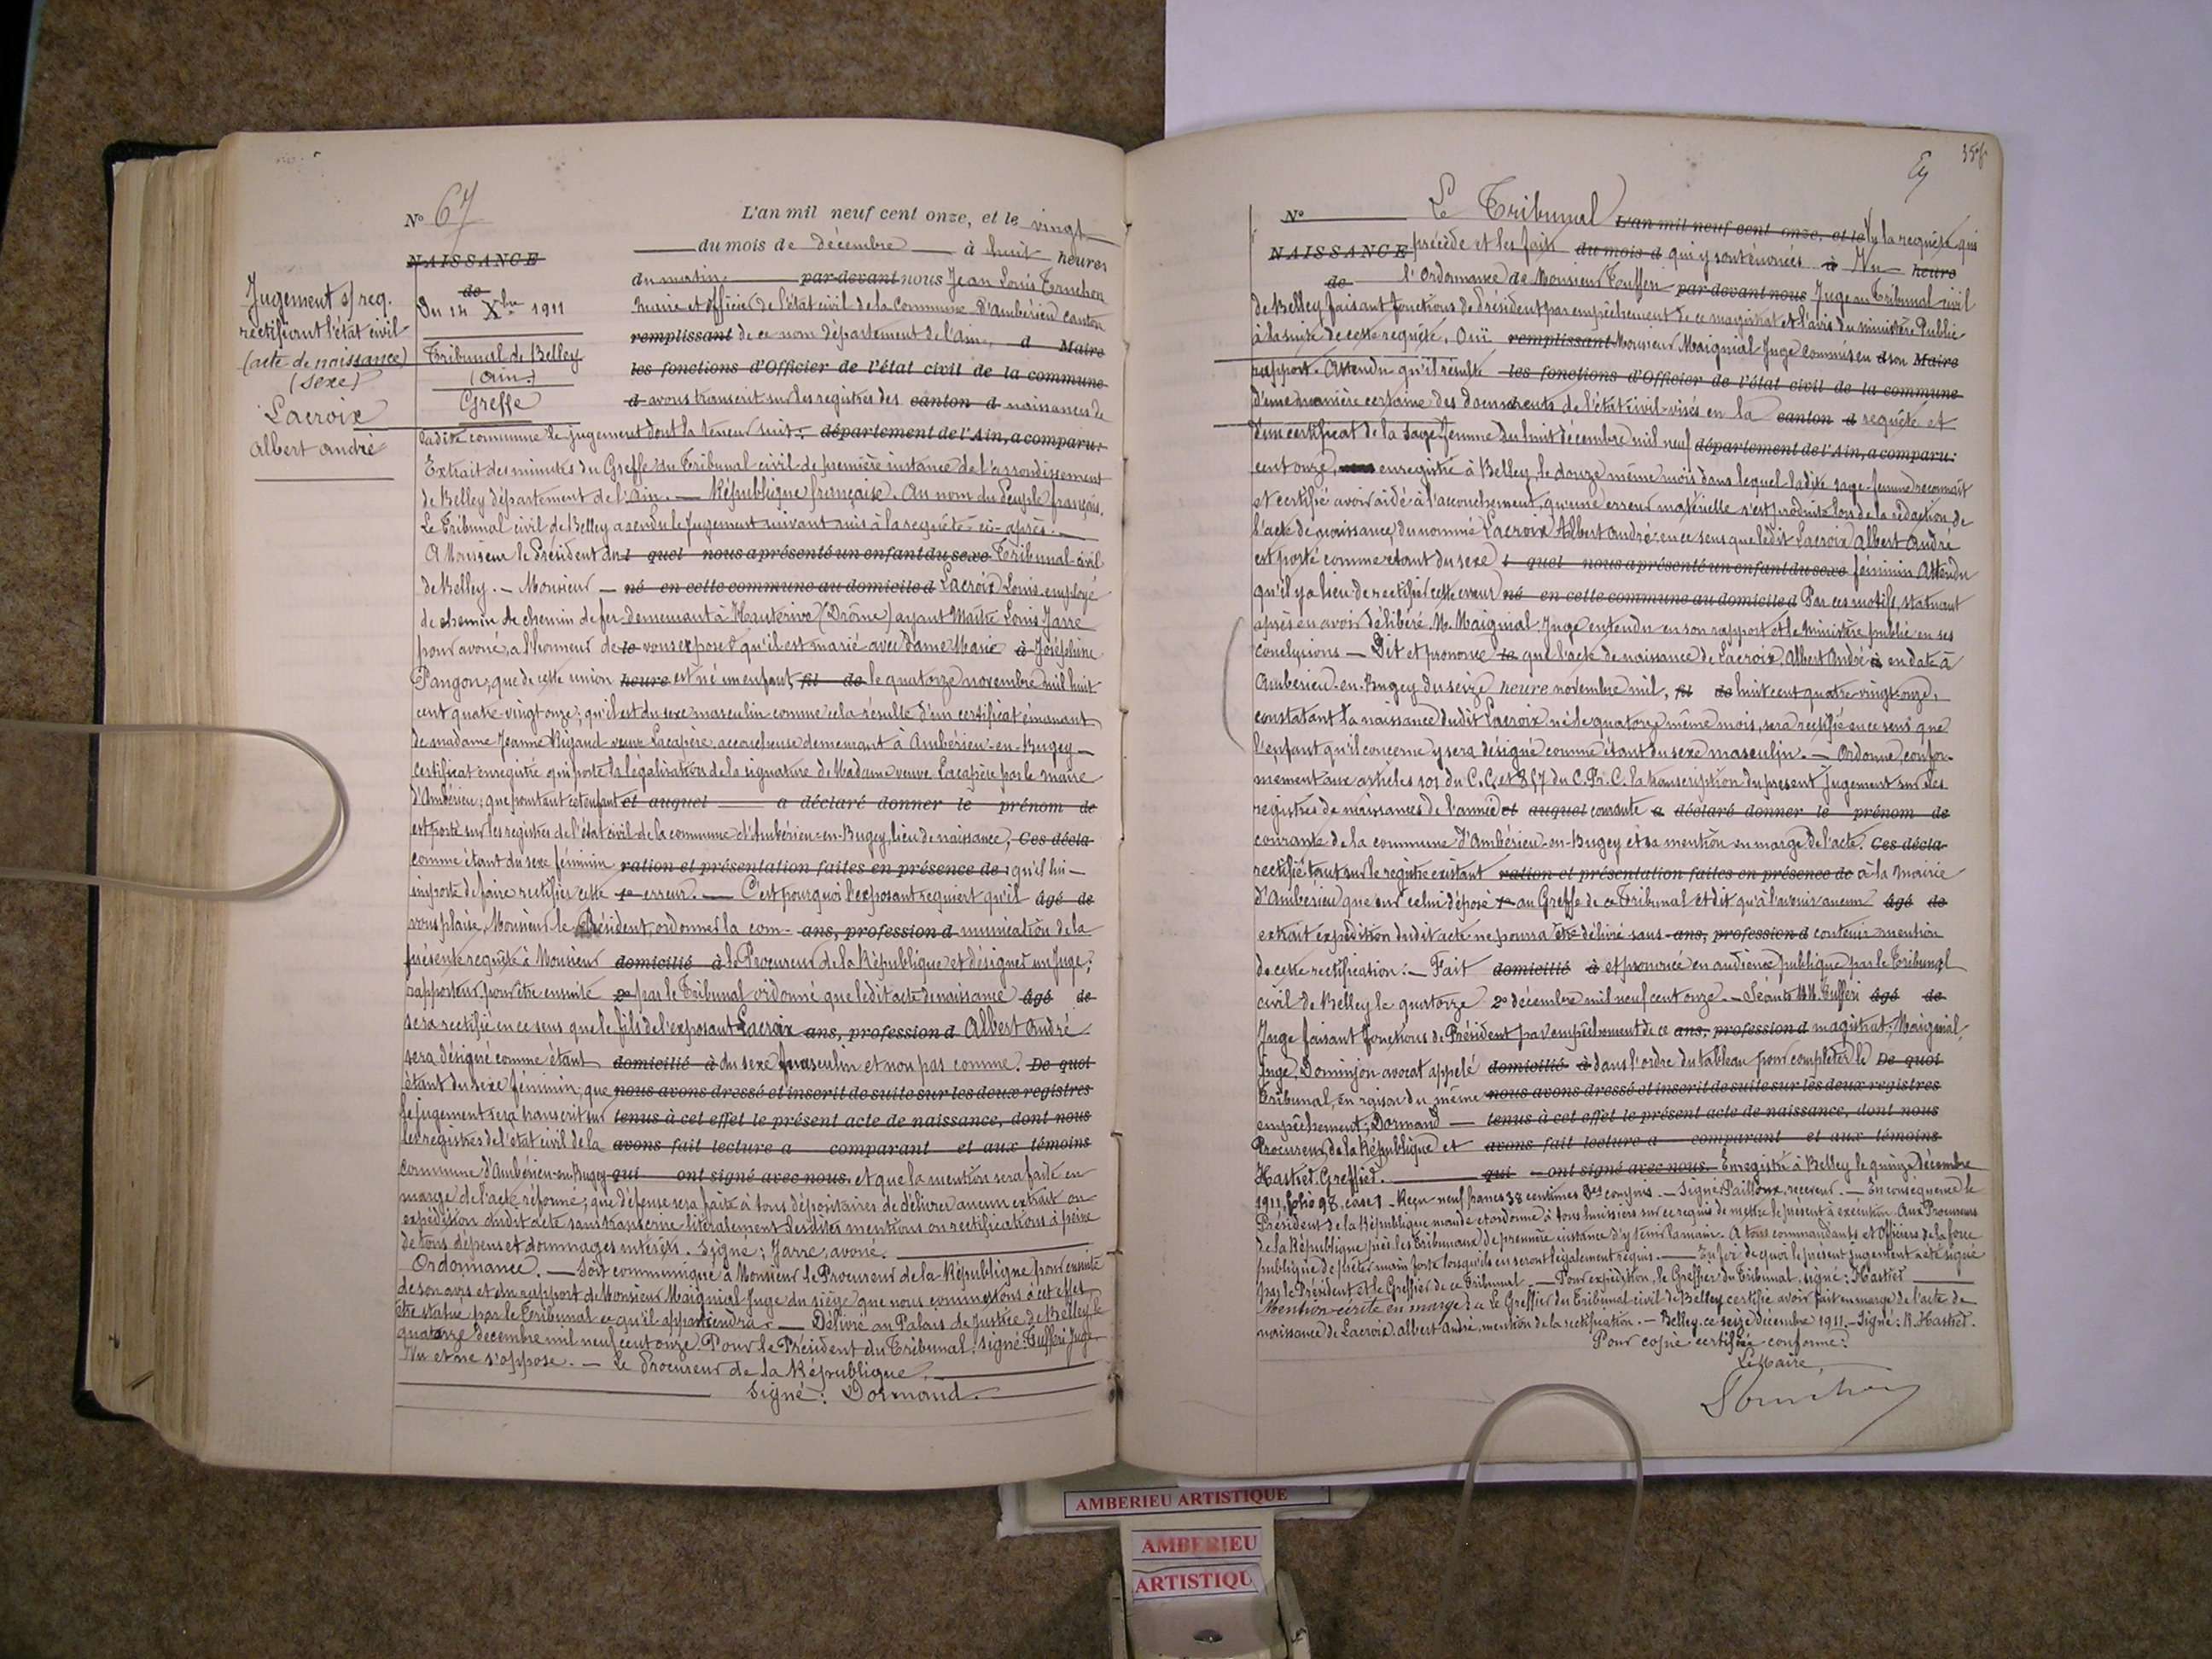 N° 67
L'an mil neuf cent onze, et le vingt
NAISSANCE
du mois de décembre à huit heures
de
du matin par-devant nous Jean Louis
Jugement s/ req.
rectifiant l'état civil
(acte de naissance)
(sexe)
Lacroix
Albert André
Du 14 Xbre 1911
Tribunal de Belley
(Ain)
Greffe
Maire et officier de l'état civil de la Commune d'Ambérieu canton
remplissant de ce nom département de l'Ain, d Maire
les fonctions d'Officier de l'état civil de la commune
d avons transcrit sur les registres des canton d naissances de
ladite commune le jugement dont la teneur suit: département de l'Ain, a comparu:
Extrait des minutes du Greffe du Tribunal civil de première instance de l'arrondissement
de Belley département de l'Ain. — République française. Au nom du Peuple français.
Le Tribunal civil de Belley a rendu le Jugement suivant mis à la requête ci-après. —
A Monsieur le Président du l quel nous a présenté un enfant du sexe Tribunal civil
de Belley. — Monsieur — né en cette commune au domicile d Lacroix Louis employé
de chemin de chemin de fer demeurant à Hauterive (Drôme) ayant Maître Louis Jarre
pour avoué, a l'honneur de le vous exposer qu'il est marié avec dame Marie à Joséphine
Pangon, que de cette union heure est né un enfant, fil de le quatorze novembre mil huit
cent quatre-vingt onze; qu'il est du sexe masculin comme cela résulte d'un certificat émanant
de madame Jeanne Rigaud veuve Lacapère accoucheuse demeurant à Ambérieu-en-Bugey —
certificat enregistré qui porte la légalisation de la signature de Madame veuve Lacapère par le maire
d'Ambérieu; que pourtant cet enfant et auquel a déclaré donner le prénom de
est porté sur les registres de l'état civil de la commune d'Ambérieu-en-Bugey, lieu de naissance, Ces décla-
comme étant du sexe féminin ration et présentation faites en présence de: qu'il lui —
importe de faire rectifier cette 1° erreur. — C'est pourquoi l'exposant requiert qu'il âgé de
vous plaise, Monsieur le Président, ordonner la com- ans, profession d munication de la
présente requête à Monsieur domicilié à le Procureur de la République et désigner un Juge,
rapporteur pour être ensuite 2° par le Tribunal ordonné que ledit acte de naissance âgé de
sera rectifié en ce sens que le fils de l'exposant Lacroix ans, profession d Albert André
sera désigné comme étant domicilié à du sexe masculin et non pas comme. De quoi
étant du sexe féminin; que nous avons dressé et inscrit de suite sur les deux registres
le jugement sera transcrit sur tenus à cet effet le présent acte de naissance, dont nous
les registres de l'état civil de la avons fait lecture a comparant et aux témoins
commune d'Ambérieu-en-Bugey qui ont signé avec nous. et que la mention sera faite en
marge de l'acte réformé; que défense sera faite à tous dépositaires de délivrer aucun extrait ou
expédition dudit acte sans transcrire littéralement lesdites mentions ou rectifications à peine
de tous dépens et dommages intérêts. Signé: Jarre, avoué.
Ordonnance. — Soit communiqué à Monsieur le Procureur de la République pour ensuite
de son avis et du rapport de Monsieur Maignial Juge du siège que nous commettons à cet effet
être statué par le Tribunal ce qu'il appartiendra. — Délivré au Palais de Justice de Belley, le
quatorze décembre mil neuf cent onze. Pour le Président du Tribunal: signé: Tufféri Juge
Vu et ne s'oppose. — Le Procureur de la République.
Signé: Dormand.
N° Le Tribunal L'an mil neuf cent onze, et le Vu la requête qui
NAISSANCE précède et les faits du mois d qui y sont énoncés à Vu heure
de l'Ordonnance de Monsieur Toufféri par-devant nous Juge au Tribunal civil
de Belley faisant fonctions de Président par empêchement de ce magistrat et l'avis du ministère Public
à la suite de cette requête. Ouï remplissant Monsieur Maignial Juge commis en d son Maire
rapport. Attendu qu'il résulte les fonctions d'Officier de l'état civil de la commune
d'une manière certaine des documents de l'état civil visés en la canton d requête et
d'un certificat de la sage-femme du huit décembre mil neuf département de l'Ain, a comparu:
cent onze, enregistré à Belley, le douze même mois dans lequel ladite sage-femme reconnaît
et certifié avoir aidé à l'accouchement, qu'une erreur matérielle s'est produite lors de la rédaction de
l'acte de naissance du nommé Lacroix Albert André en ce sens que ledit Lacroix Albert André
est porté comme étant du sexe l quel nous a présenté un enfant du sexe féminin Attendu
qu'il y a lieu de rectifier cette erreur né en cette commune au domicile d Par ces motifs, statuant
après en avoir délibéré. M. Maignial Juge entendu en son rapport et le ministère public en ses
conclusions — Dit et prononce le que l'acte de naissance de Lacroix Albert André à en date à
Ambérieu-en-Bugey du seize heure novembre mil, fil de huit cent quatre-vingt-onze,
constatant la naissance dudit Lacroix né le quatorze même mois, sera rectifié en ce sens que
l'enfant qu'il concerne y sera désigné comme étant du sexe masculin. — Ordonne, confor-
mément aux articles 101 du C. C. et 857 du C. Pr. C. la transcription du présent Jugement sur les
registres de naissances de l'année et auquel courante a déclaré donner le prénom de
courante de la commune d'Ambérieu-en-Bugey et sa mention en marge de l'acte. Ces décla-
rectifié tant sur le registre existant ration et présentation faites en présence de à la mairie
d'Ambérieu que sur celui déposé 1° au Greffe de ce Tribunal et dit qu'à l'avenir aucun âgé de
extrait expédition dudit acte ne pourra être délivré sans ans, profession d contenir mention
de cette rectification: — Fait domicilié à et prononcé en audience publique par le Tribunal
civil de Belley le quatorze 2° décembre mil neuf cent onze. — Séants MM. Tufféri âgé de
Juge faisant fonctions de Président par empêchement de ce ans, profession d magistrat; Maignial,
Juge, Dominjon avocat appelé domicilié à dans l'ordre du tableau pour compléter le De quoi
Tribunal, en raison du même nous avons dressé et inscrit de suite sur les deux registres
empêchement; Dormand — tenus à cet effet le présent acte de naissance, dont nous
Procureur de la République et avons fait lecture a comparant et aux témoins
Hastret Greffier. qui ont signé avec nous. Enregistré à Belley le quinze décembre
1911, folio 98, case 1. Reçu neuf francs 38 centimes Des compris. — Signé Pailloux, receveur. — En conséquence le
Président de la République mande et ordonne à tous huissiers sur ce requis de mettre le présent à exécution. Aux Procureurs
de la République près les Tribunaux de première instance d'y tenir la main. A tous commandants et Officiers de la force
publique de prêter main forte lorsqu'ils en seront légalement requis. — En foi de quoi le présent jugement a été signé
par le Président et le Greffier de ce Tribunal. — Pour expédition, le Greffier du Tribunal, signé: Hastret
Mention écrite en marge: Le Greffier du Tribunal civil de Belley certifie avoir fait en marge de l'acte de
naissance de Lacroix albert André, mention de la rectification. — Belley, ce seize décembre 1911. — Signé: R. Hastret.
Pour copie certifiée conforme:
Le Maire,
AMBERIEU ARTISTIQUE
AMBERIEU
ARTISTIQU